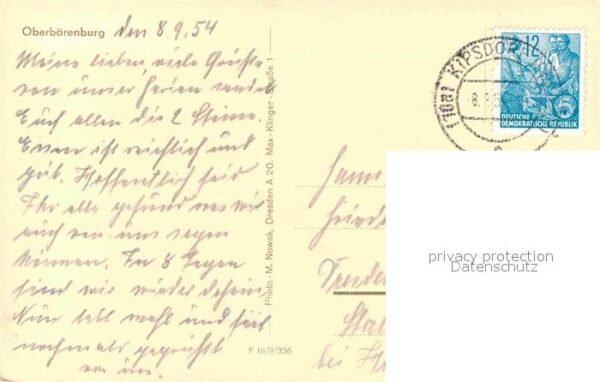 Oberbärenburg den 8.9.54
Meine lieben, viele Grüße
von unser Ferien
Euch allen die 2 Steine.
Essen ist reichlich und
gut. Hoffentlich seid
Ihr alle gesund was wir
auch von uns sagen
können. In 8 Tagen
sind wir wieder daheim
Nun lebt wohl und seid
nochmals gegrüßt
von uns.
Photo - M. Nowak, Dresden A 20, Max-Klinger-Straße 1
F III/9/336
KIPSDORF
12
DEUTSCHE
DEMOKRATISCHE REPUBLIK
Dresden
bei
privacy protection
Datenschutz